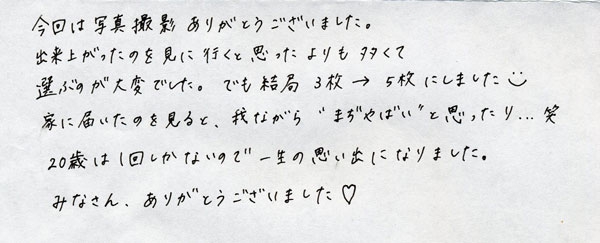 今回は写真撮影ありがとうございました。
出来上がったのを見に行くと思ったよりも多くて
選ぶのが大変でした。でも結局 3枚 → 5枚にしました
家に届いたのを見ると、我ながら “まぢやばい” と思ったり… 笑
20歳は1回しかないので一生の思い出になりました。
みなさん、ありがとうございました♡